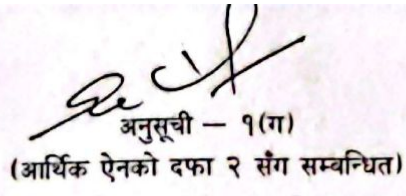 अनुसूची – १(ग)
(आर्थिक ऐनको दफा २ सँग सम्बन्धित)